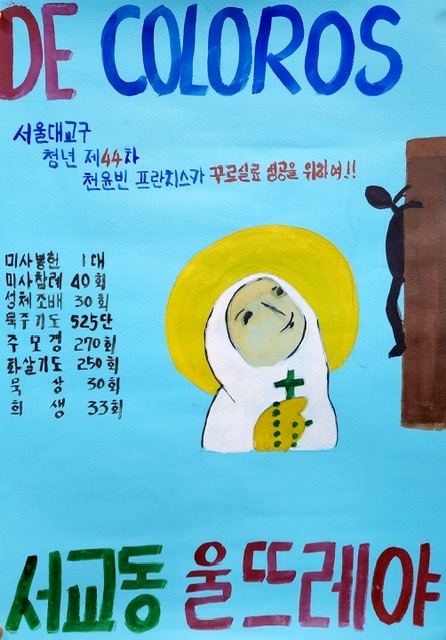 DE COLOROS
서울대교구
청년 제44차
천윤빈 프란치스카 꾸르실료 성공을 위하여!!
미사봉헌 1대
미사참례 40회
성체조배 30회
묵주기도 525단
주모경 270회
화살기도 250회
묵상 30회
희생 33회
서교동 울뜨레야